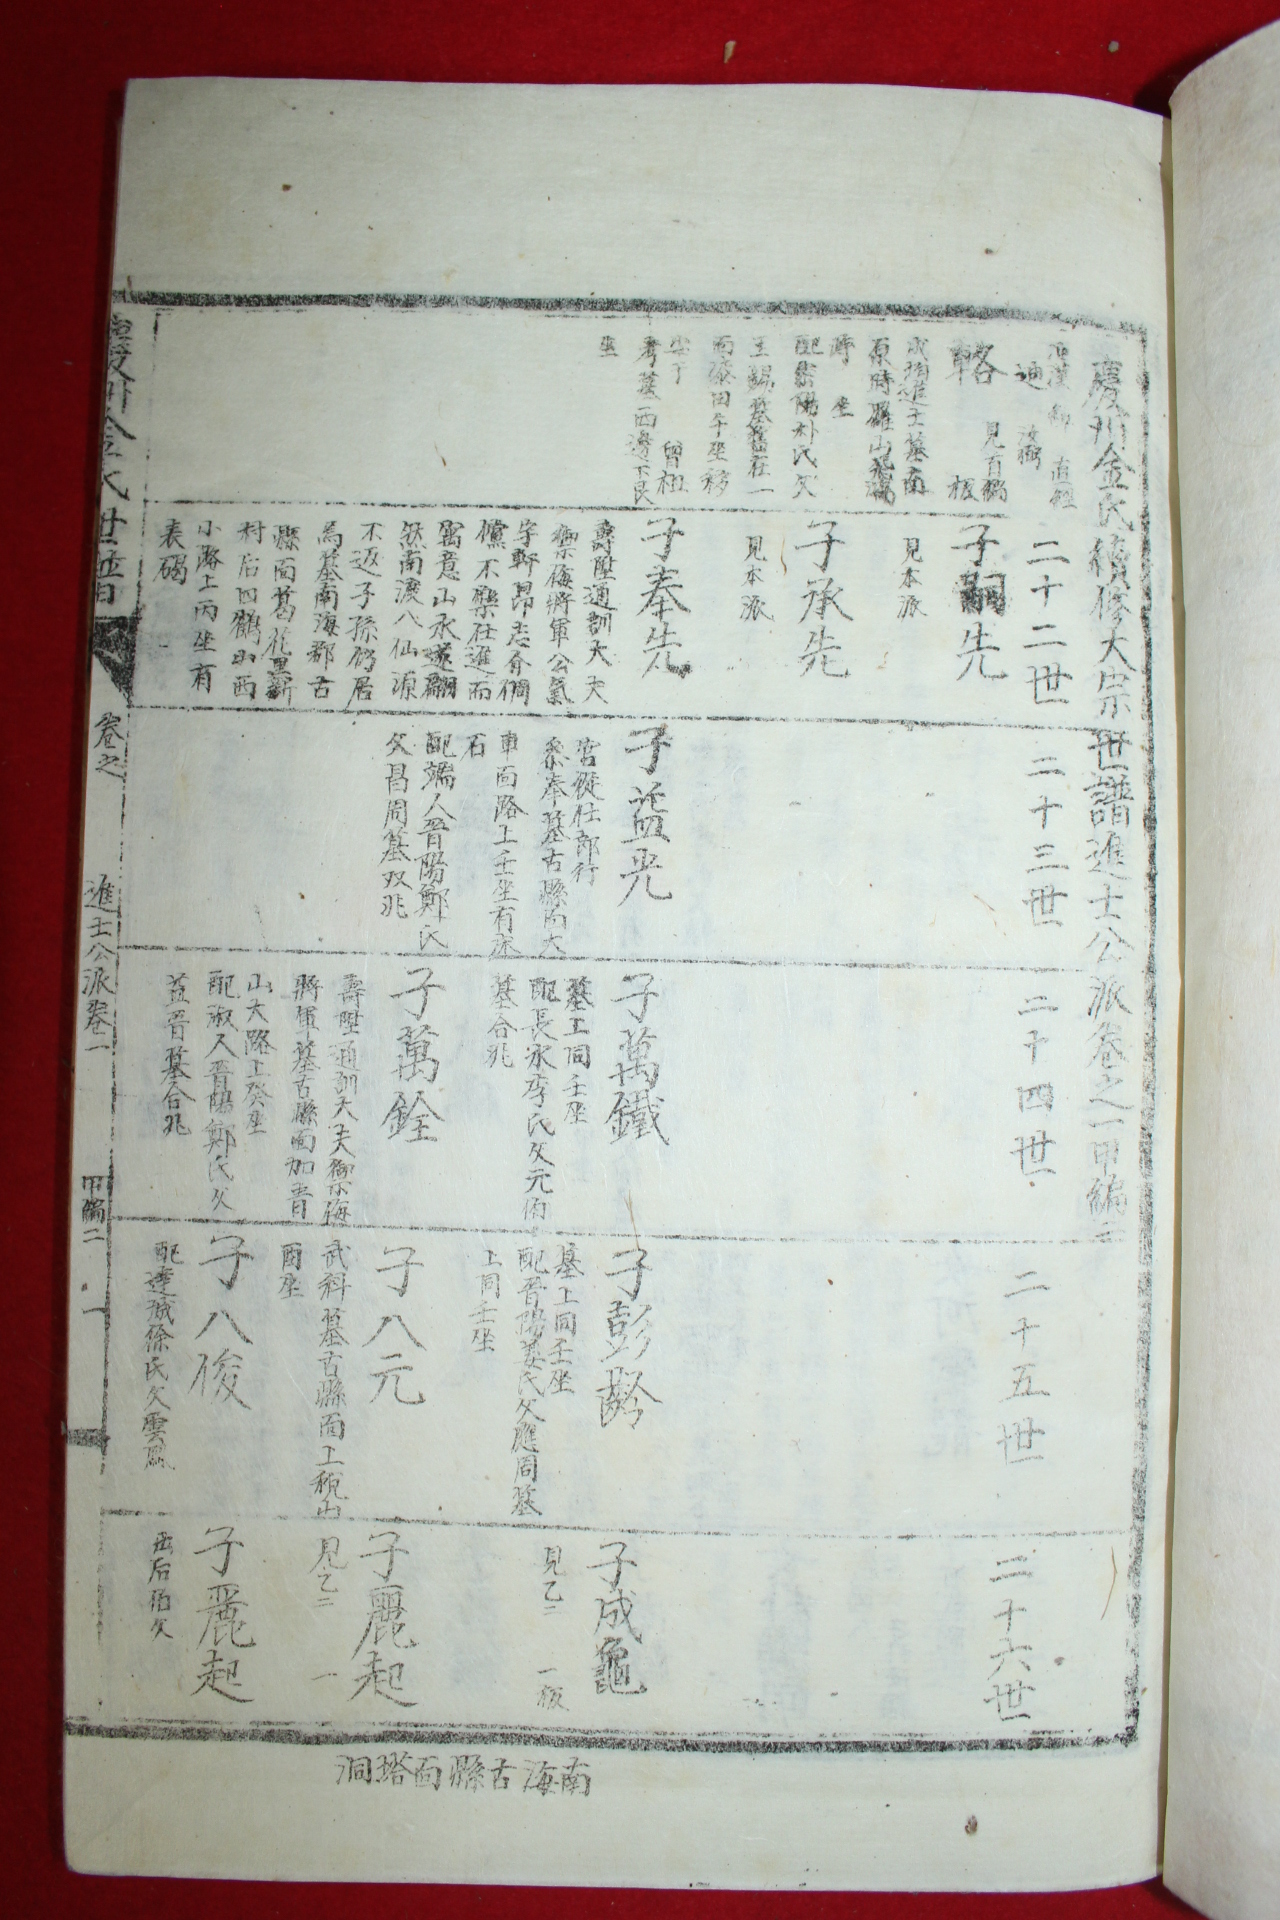 慶州金氏續修大宗世譜進士公派卷之一甲編二
二十二世
二十三世
二十四世
二十五世
二十六世
輅
見百編
成均進士墓南
配密陽朴氏父
曾祖
考墓西邊下艮
坐
子嗣先
見本派
子承先
見本派
子奉先
壽陞通訓大夫
禦侮將軍公氣
宇軒昂志介倜
儻不樂仕進而
寓意山水遂飄
然南渡八仙源
不返子孫仍居
焉墓南海郡古
縣面葛花里新
村后四鶴山西
小路上丙坐有
表碣
子益光
官從仕郎行
參奉墓古縣面大
車面路上壬坐有床
石
配端人晋陽鄭氏
父昌周墓双兆
子萬鐵
墓上同壬坐
配長水李氏父元佰
墓合兆
子萬銓
壽陞通訓大夫禦侮
將軍墓古縣面加青
山大路上癸坐
配淑人晋陽鄭氏父
益晋墓合兆
子彭齡
墓上同壬坐
配晋陽姜氏父應周墓
上同壬坐
子八元
武科墓古縣面上稅山
酉坐
子八俊
配達城徐氏父雲鳳
子成龜
見乙二
一板
子麗起
見乙二
一
子麗起
出后伯父
慶州金氏世譜
卷之
進士公派卷一
甲編二
一
南海古縣面塔洞